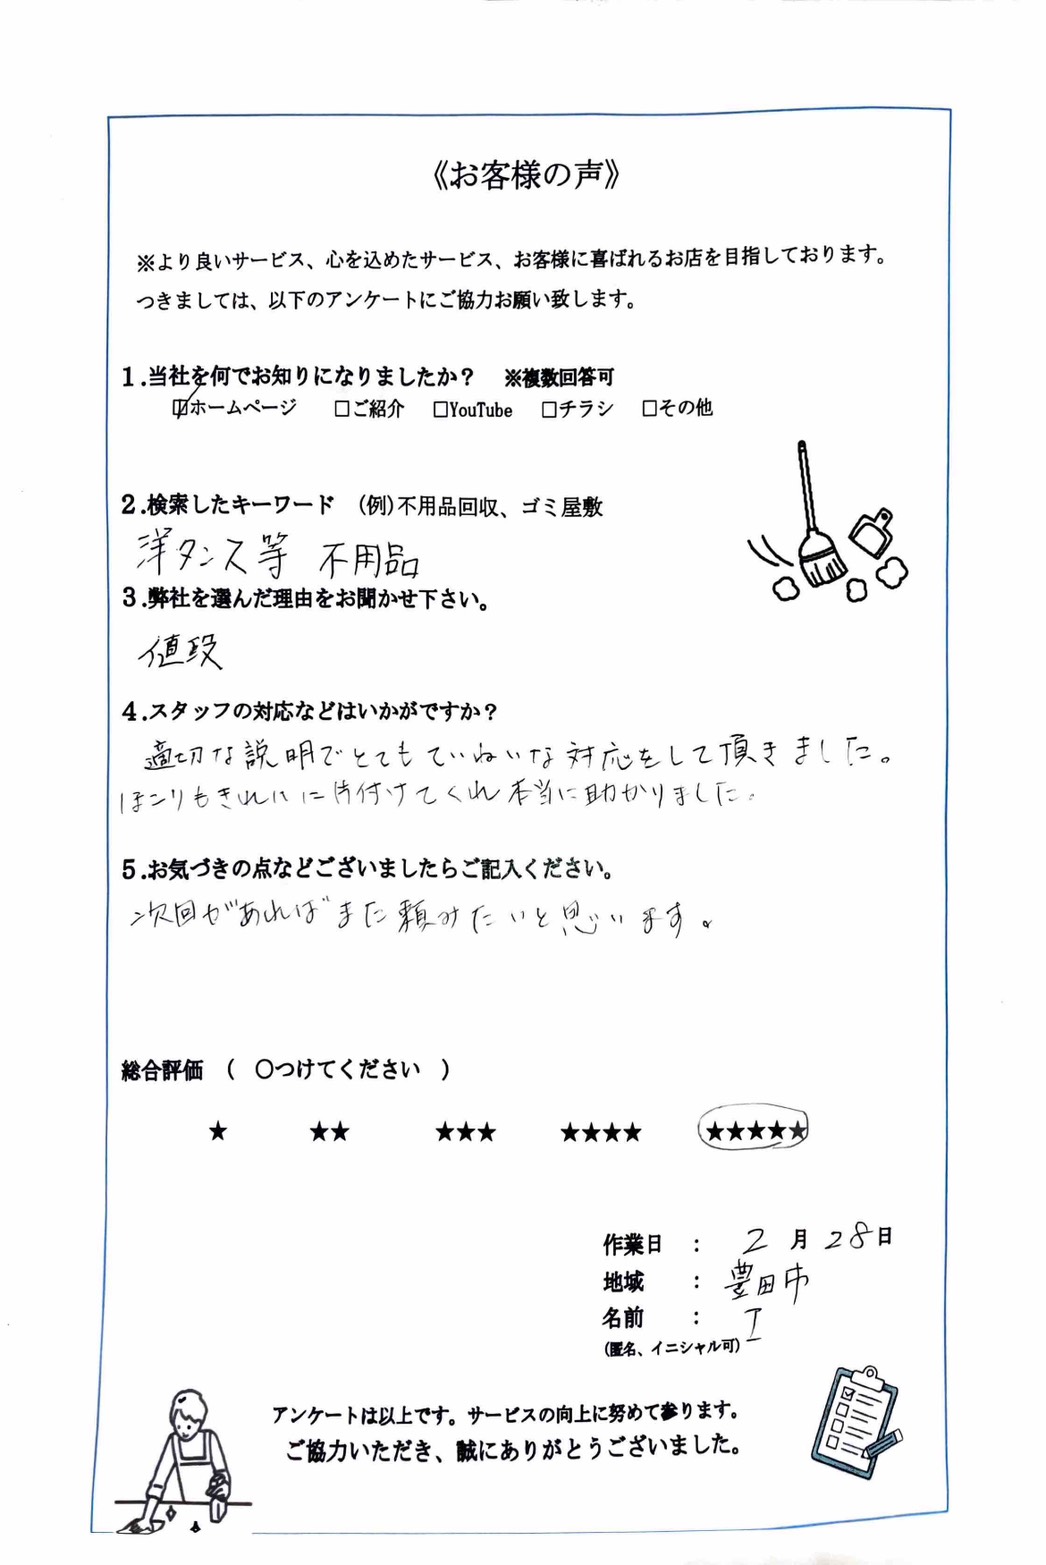 《お客様の声》
※より良いサービス、心を込めたサービス、お客様に喜ばれるお店を目指しております。
つきましては、以下のアンケートにご協力お願い致します。
1.当社を何でお知りになりましたか？ ※複数回答可
☑ホームページ □ご紹介 □YouTube □チラシ □その他
2.検索したキーワード (例)不用品回収、ゴミ屋敷
洋タンス等 不用品
3.弊社を選んだ理由をお聞かせ下さい。
値段
4.スタッフの対応などはいかがですか？
適切な説明でとてもていねいな対応をして頂きました。
ほこりもきれいに片付けてくれ本当に助かりました。
5.お気づきの点などございましたらご記入ください。
次回があればまた頼みたいと思います。
総合評価 ( 〇つけてください )
★ ★★ ★★★ ★★★★ ★★★★★
作業日 : 2月28日
地域 : 豊田市
名前 : I
(匿名、イニシャル可)
アンケートは以上です。サービスの向上に努めて参ります。
ご協力いただき、誠にありがとうございました。